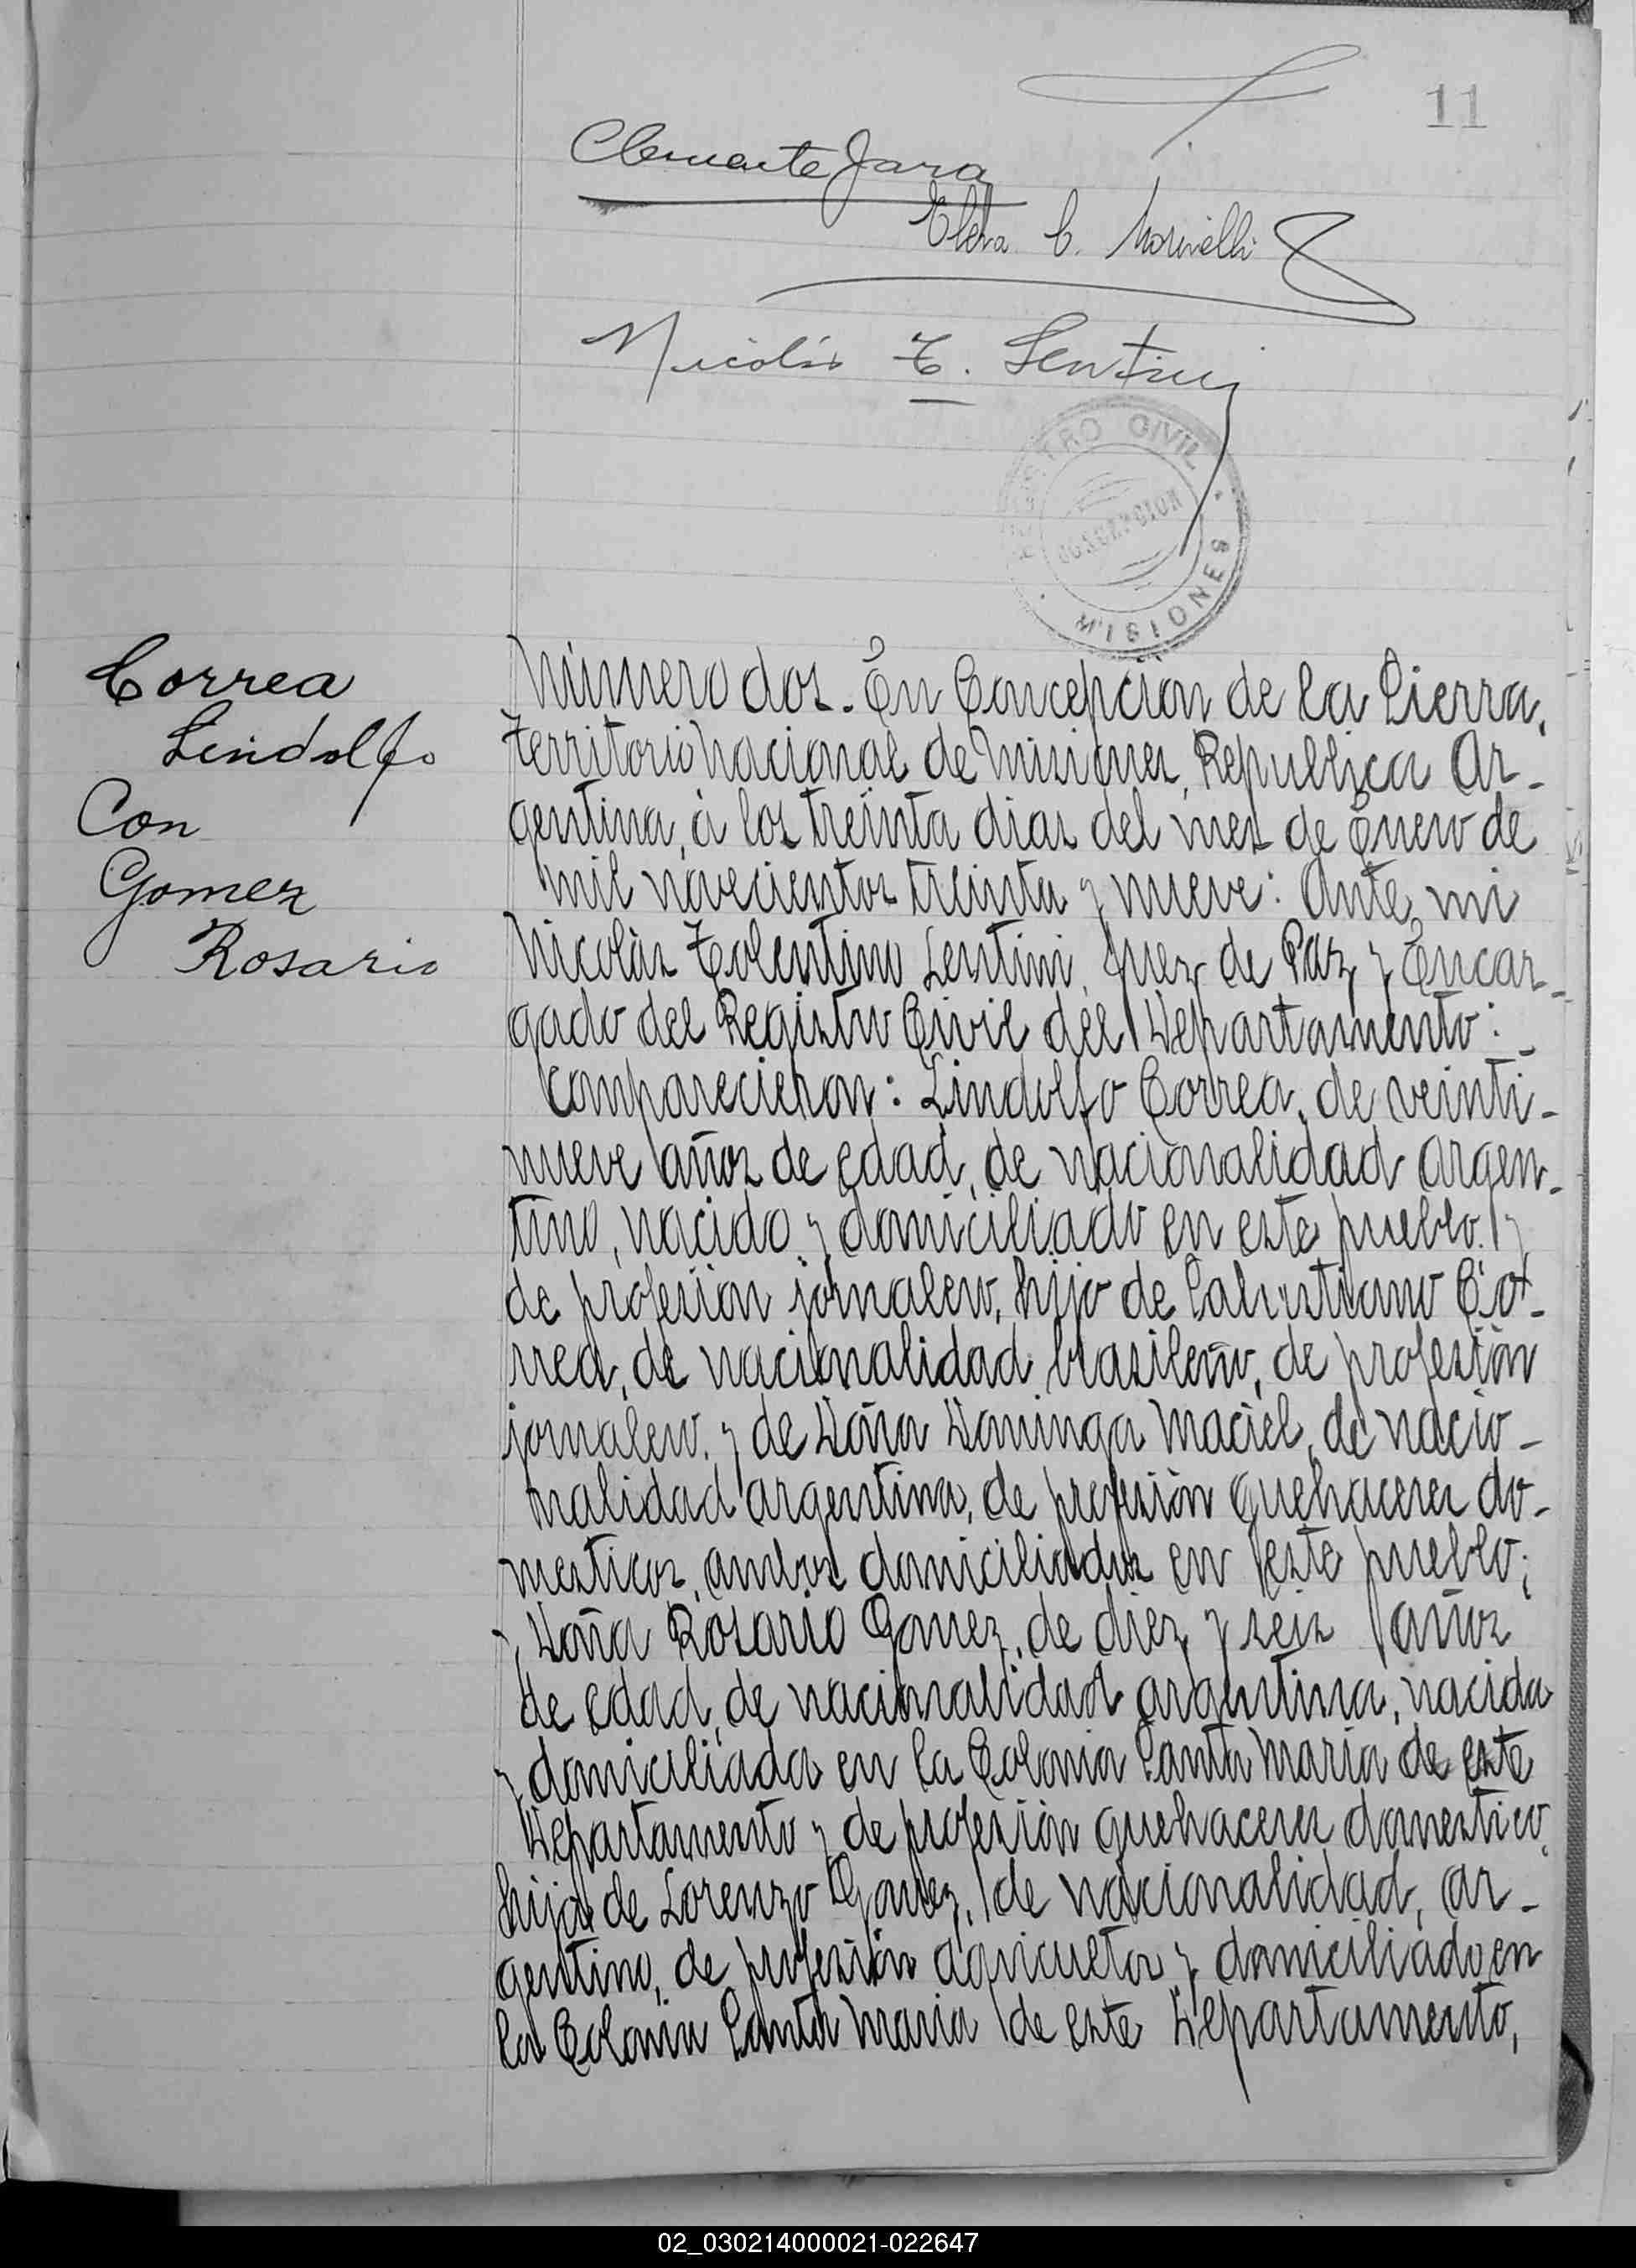 11
Clemente Jara
Elena C. Morinelli
Nicolás T. Lentini
REGISTRO CIVIL
CONCEPCION
MISIONES
Correa
Lindolfo
Con
Gomez
Rosario
Número dos. En Concepción de la Sierra,
territorio nacional de Misiones, Republica Ar-
gentina, á los treinta dias del mes de Enero de
mil novecientos treinta y nueve: Ante mi
Nicolás Tolentino Lentini, Juez de Paz y Encar-
gado del Registro Civil del Departamento:
comparecieron: Lindolfo Correa, de veinti-
nueve años de edad, de nacionalidad argen-
tino, nacido y domiciliado en este pueblo y
de profesión jornalero, hijo de Salustiano Co-
rrea, de nacionalidad brasileño, de profesión
jornalero y de Doña Dominga Maciel, de nacio-
nalidad argentina, de profesión quehaceres do-
mesticos, ambos domiciliados en este pueblo;
y Doña Rosario Gomez, de diez y seis años
de edad, de nacionalidad argentina, nacida
y domiciliada en la Colonia Santa Maria de este
Departamento y de profesión quehaceres domestico,
hija de Lorenzo Gomez, de nacionalidad, ar-
gentino, de profesión agricultor y domiciliado en
la Colonia Santa Maria de este Departamento,
02_030214000021-022647